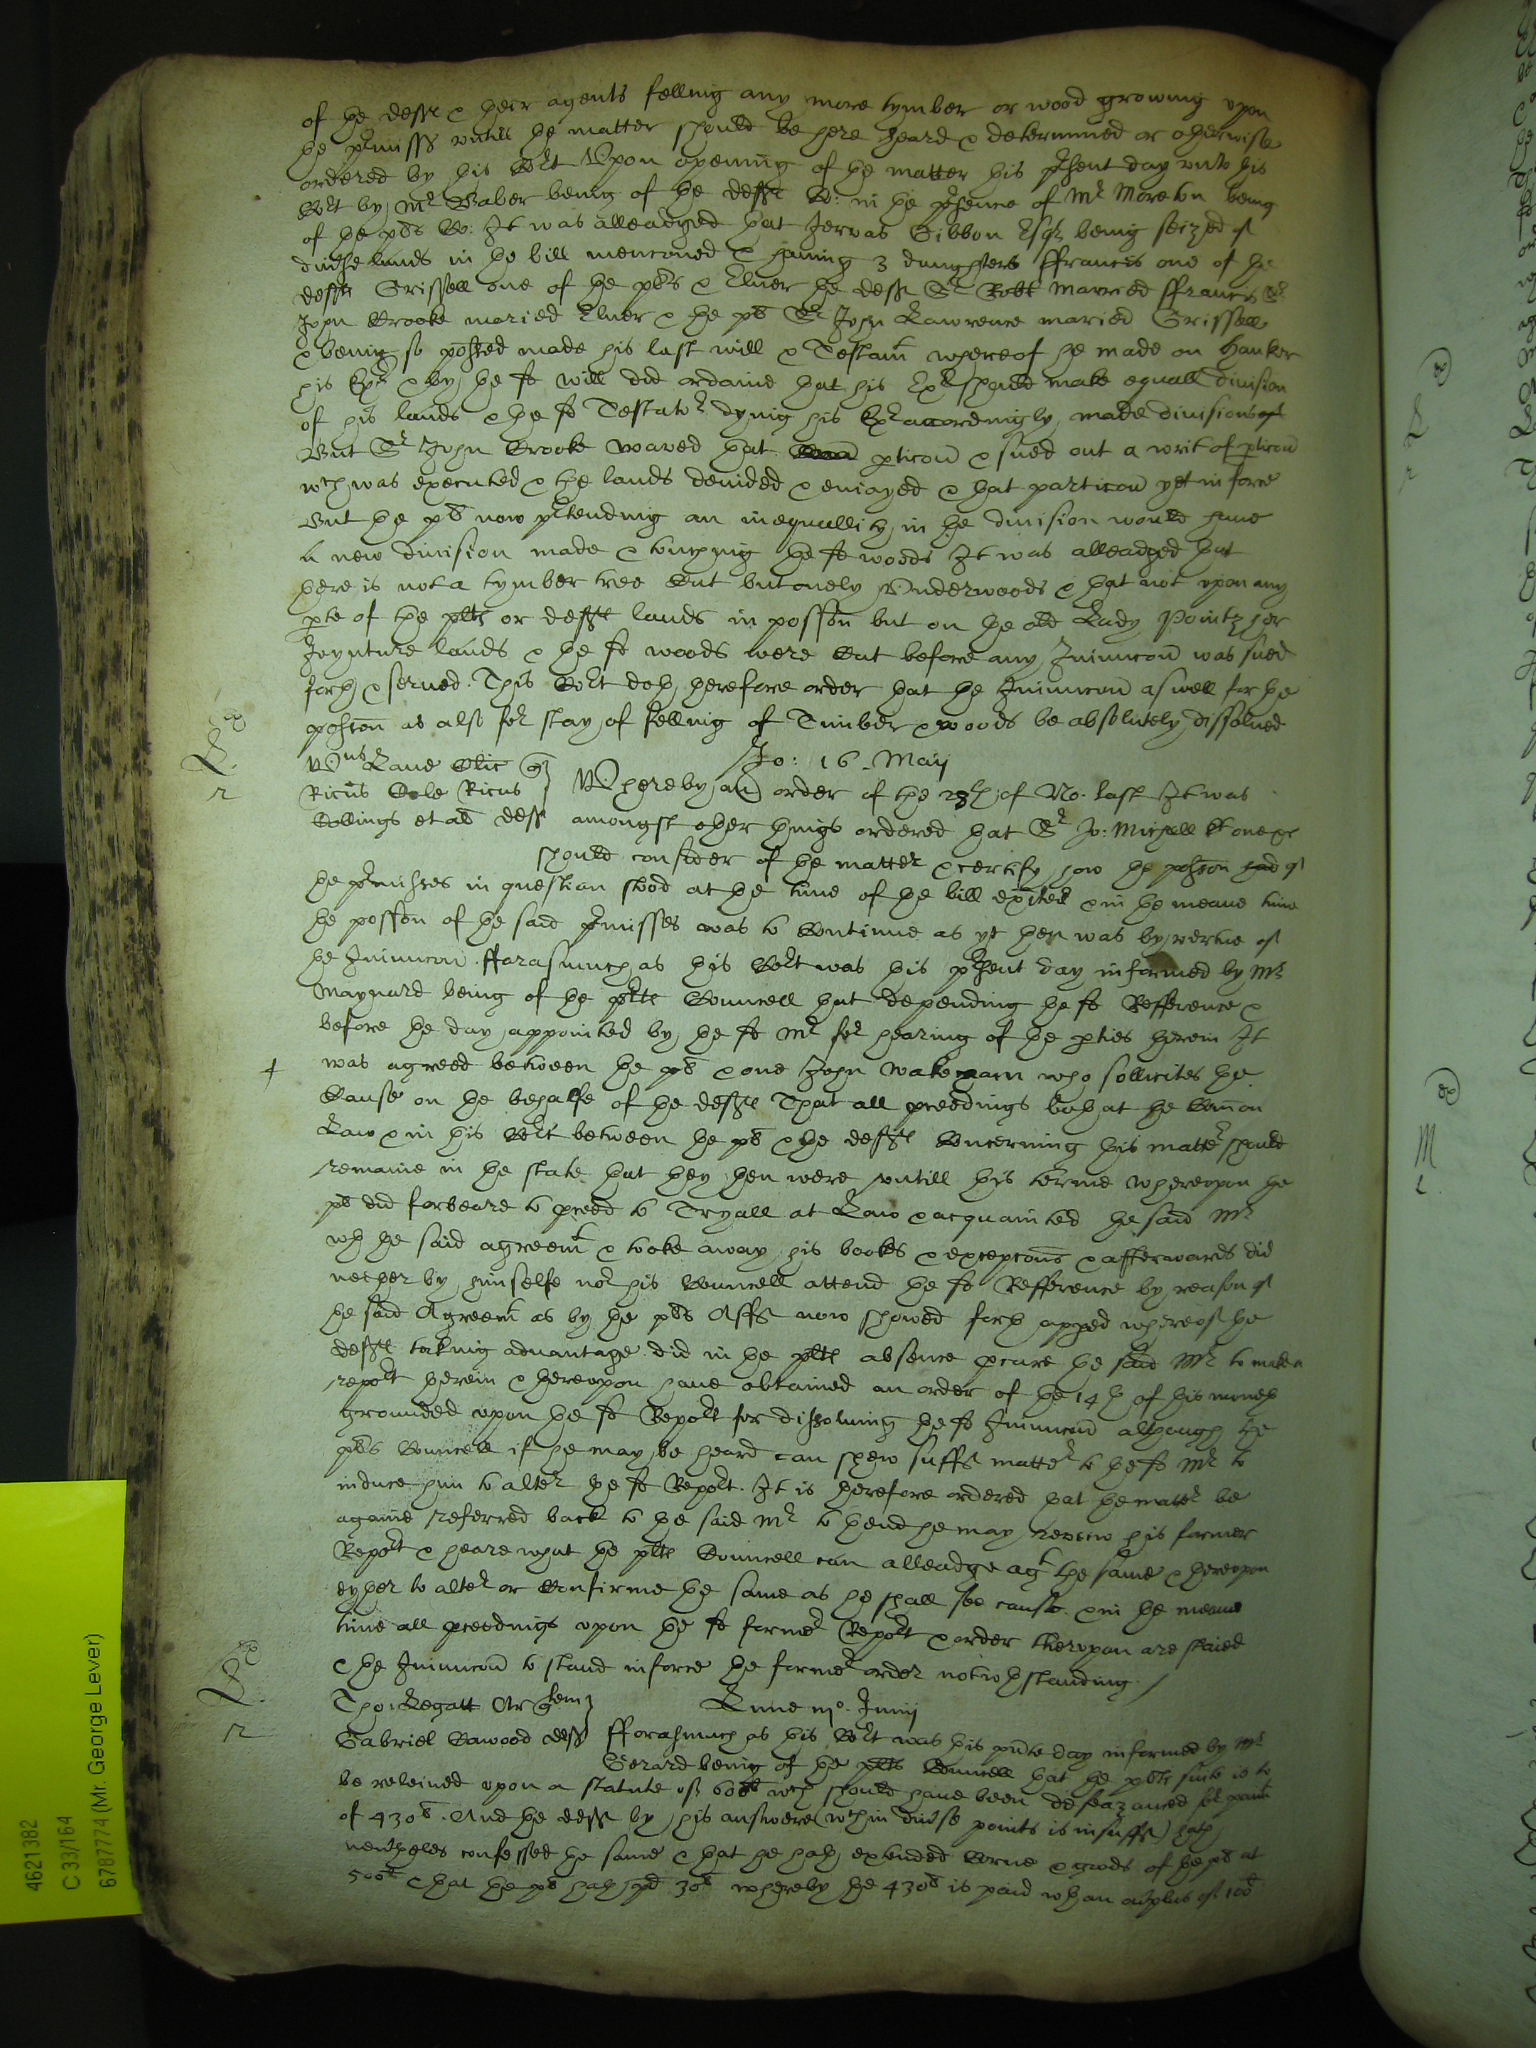 of the defts & their agents felling any more tymber or wood growing upon
the pmisss untill the matter should be here heard & determined or otherwise
ordered by this Cort Upon opening of the matter this psent day unto this
Cort by Mr Baber being of the defts Co: in the psence of Mr Moreton being
of the pts Co: It was alleadged that Jervas Gibbon Esqr being seized of
diuse lands in the bill mencioned & having 3 daughters ffrancis one of the
defts Grissell one of the pts & Elner the deft Sr Robt married ffrancis Sr
John Crooke maried Elner & the pt Sr John Lawrence maried Grissell
& being so possed made his last will & Testamt whereof he made on Hanker
his Exr & by the sd will did ordaine that his Exr should make equall division
of his lands & the sd Testator dying his Exr accordingly made division of
But Sr John Crooke waved that pticon & sued out a writ of pticon
wch was executed & the lands devided & enioyed & that particon yet in force
But the pt now ptending an inequallity in the division would have
a new division made & touching the sd woods It was alleadged that
there is not a tymber tree Cut but onely Underwoods & that not upon any
pte of the plts or defts lands in posson but on the old Lady Pointz her
Joynture lands & the sd woods were Cut before any Iniunccon was sued
forth & served. This Cort doth therefore order that the Iniunccon aswell for the
posson as also for stay of felling of Timber & woods be absolutely dissolued
Uns Lane Quer Jo: 16 Maij
Ricus Cole Ricus Whereby an order of the 28th of No. last It was
Collings et al deft amongst other things ordered that Sr Jo: Michell kt one &c
should consider of the matter & certify how the posson had of
the pmisses in question stood at the time of the bill exited & in the meane time
the posson of the said pmisses was to Continue as yt then was by vertue of
the Iniunccon. fforasmuch as this Cort was this psent day informed by Mr
Maynard being of the plts Councell that depending the sd Refference &
before the day appointed by the sd Mr for hearing of the pties therein It
was agreed between the pt & one John Wakeman who sollicites the
Cause on the behalfe of the defts That all pceedings both at the Comon
Law & in this Cort between the pt & the defts Concerning this matter should
remaine in the state that they then were untill this terme whereupon the
pt did forbeare to pceed to Tryall at Law & acquainted the said Mr
wth the said agreemt & tooke away his bookes & excepcons & afterwards did
neither by himselfe nor his Councell attend the sd Refference by reason of
the said Agreemt as by the pts Afft now shewed forth apped whereof the
defts taking advantage did in the plts absence pcure the said Mr to make a
report herein & thereupon have obtained an order of the 14th of this moneth
grounded upon the sd Report for dissolving the sd Iniunccon although the
pts Councell if he may be heard can shew sufft matter to the sd Mr to
induce him to alter the sd Report. It is therefore ordered that the matter be
againe referred back to the said Mr to thend he may review his former
Report & heare what the plts Councell can alleadge agt the same & thereupon
eyther to alter or Confirme the same as he shall see cause & in the meane
time all pceedings upon the sd former Report & order thereupon are staied
& the Iniunccon to stand in force the former order notwthstanding.
Tho: Legatt Ar quem Lune mo. Junij
Gabriel Cawood deft fforasmuch as this Cort was this pnte day informed by Mr
Gerard being of the plts Councell that the plts suite is to
be releived upon a statute of 600l wch should have been defeazanced for paimt
of 430l. And the deft by his answere (wch in diuse points is insufft) hath
neutheles confessed the same & that he hath extended Corne & goods of the pt at
500l & that the pt hath pd 30l whereby the 430l is paid wth an ouplus of 100l
4621382
C 33/164
6787774 (Mr. George Lever)